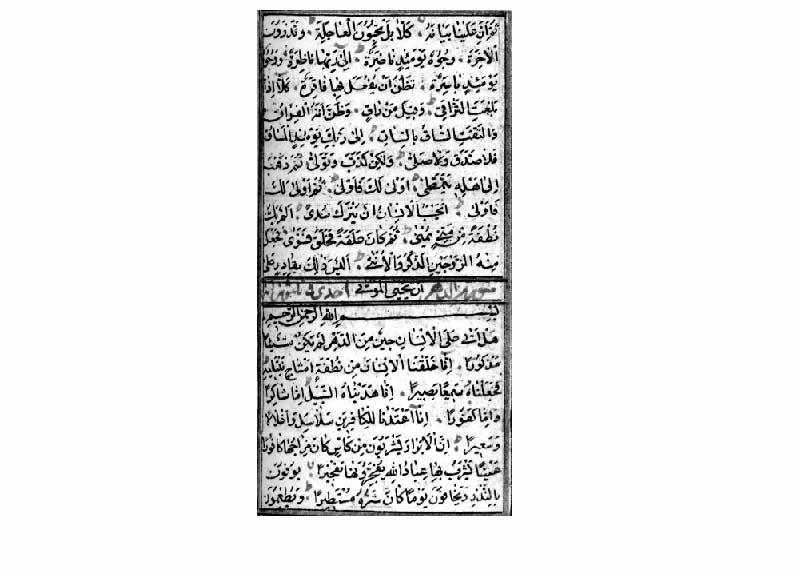 ثم ان علينا بيانه كلا بل تحبون العاجلة وتذرون
الآخرة وجوه يومئذ ناضرة الى ربها ناظرة ووجوه
يومئذ باسرة تظن ان يفعل بها فاقرة كلا اذا
بلغت التراقي وقيل من راق وظن انه الفراق
والتفت الساق بالساق الى ربك يومئذ المساق
فلا صدق ولا صلى ولكن كذب وتولى ثم ذهب
الى اهله يتمطى اولى لك فاولى ثم اولى لك
فاولى ايحسب الانسان ان يترك سدى الم يك
نطفة من مني يمنى ثم كان علقة فخلق فسوى فجعل
منه الزوجين الذكر والانثى اليس ذلك بقادر على
ان يحيي الموتى
بسم الله الرحمن الرحيم
هل اتى على الانسان حين من الدهر لم يكن شيئا
مذكورا انا خلقنا الانسان من نطفة امشاج نبتليه
فجعلناه سميعا بصيرا انا هديناه السبيل اما شاكرا
واما كفورا انا اعتدنا للكافرين سلاسل واغلالا
وسعيرا ان الابرار يشربون من كاس كان مزاجها كافورا
عينا يشرب بها عباد الله يفجرونها تفجيرا يوفون
بالنذر ويخافون يوما كان شره مستطيرا ويطعمون